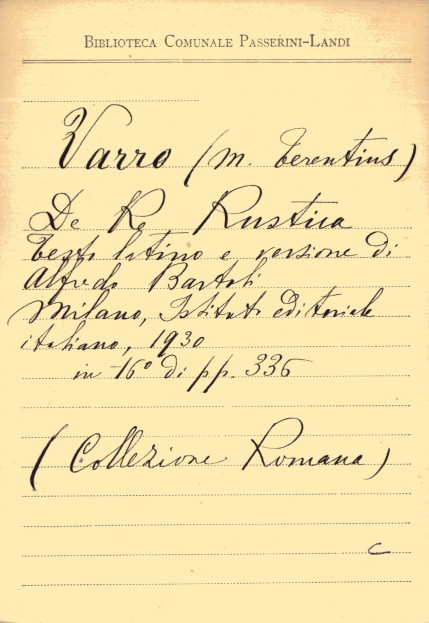 BIBLIOTECA COMUNALE PASSERINI-LANDI
Varro (M. Terentius)
De Re Rustica
Testo latino e versione di
Alfredo Bartoli
Milano, Istituto editoriale
italiano, 1930
in 16° di pp. 336
(Collezione Romana)
C